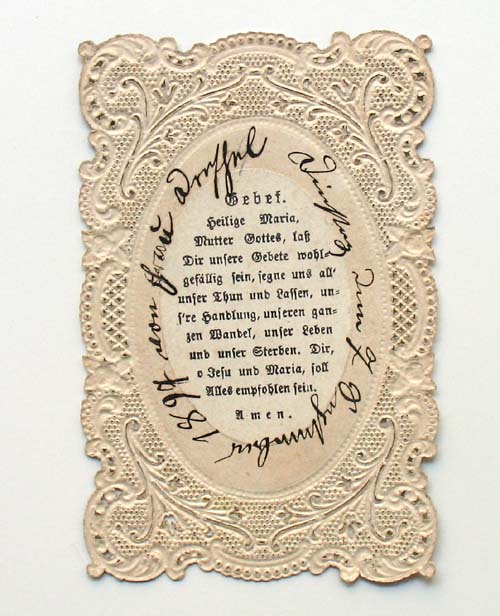 Gebet.
Heilige Maria,
Mutter Gottes, laß
Dir unsere Gebete wohl-
gefällig sein, segne uns all'
unser Thun und Lassen, un-
s're Handlung, unseren gan-
zen Wandel, unser Leben
und unser Sterben. Dir,
o Jesu und Maria, soll
Alles empfohlen sein.
Amen.
von Frau